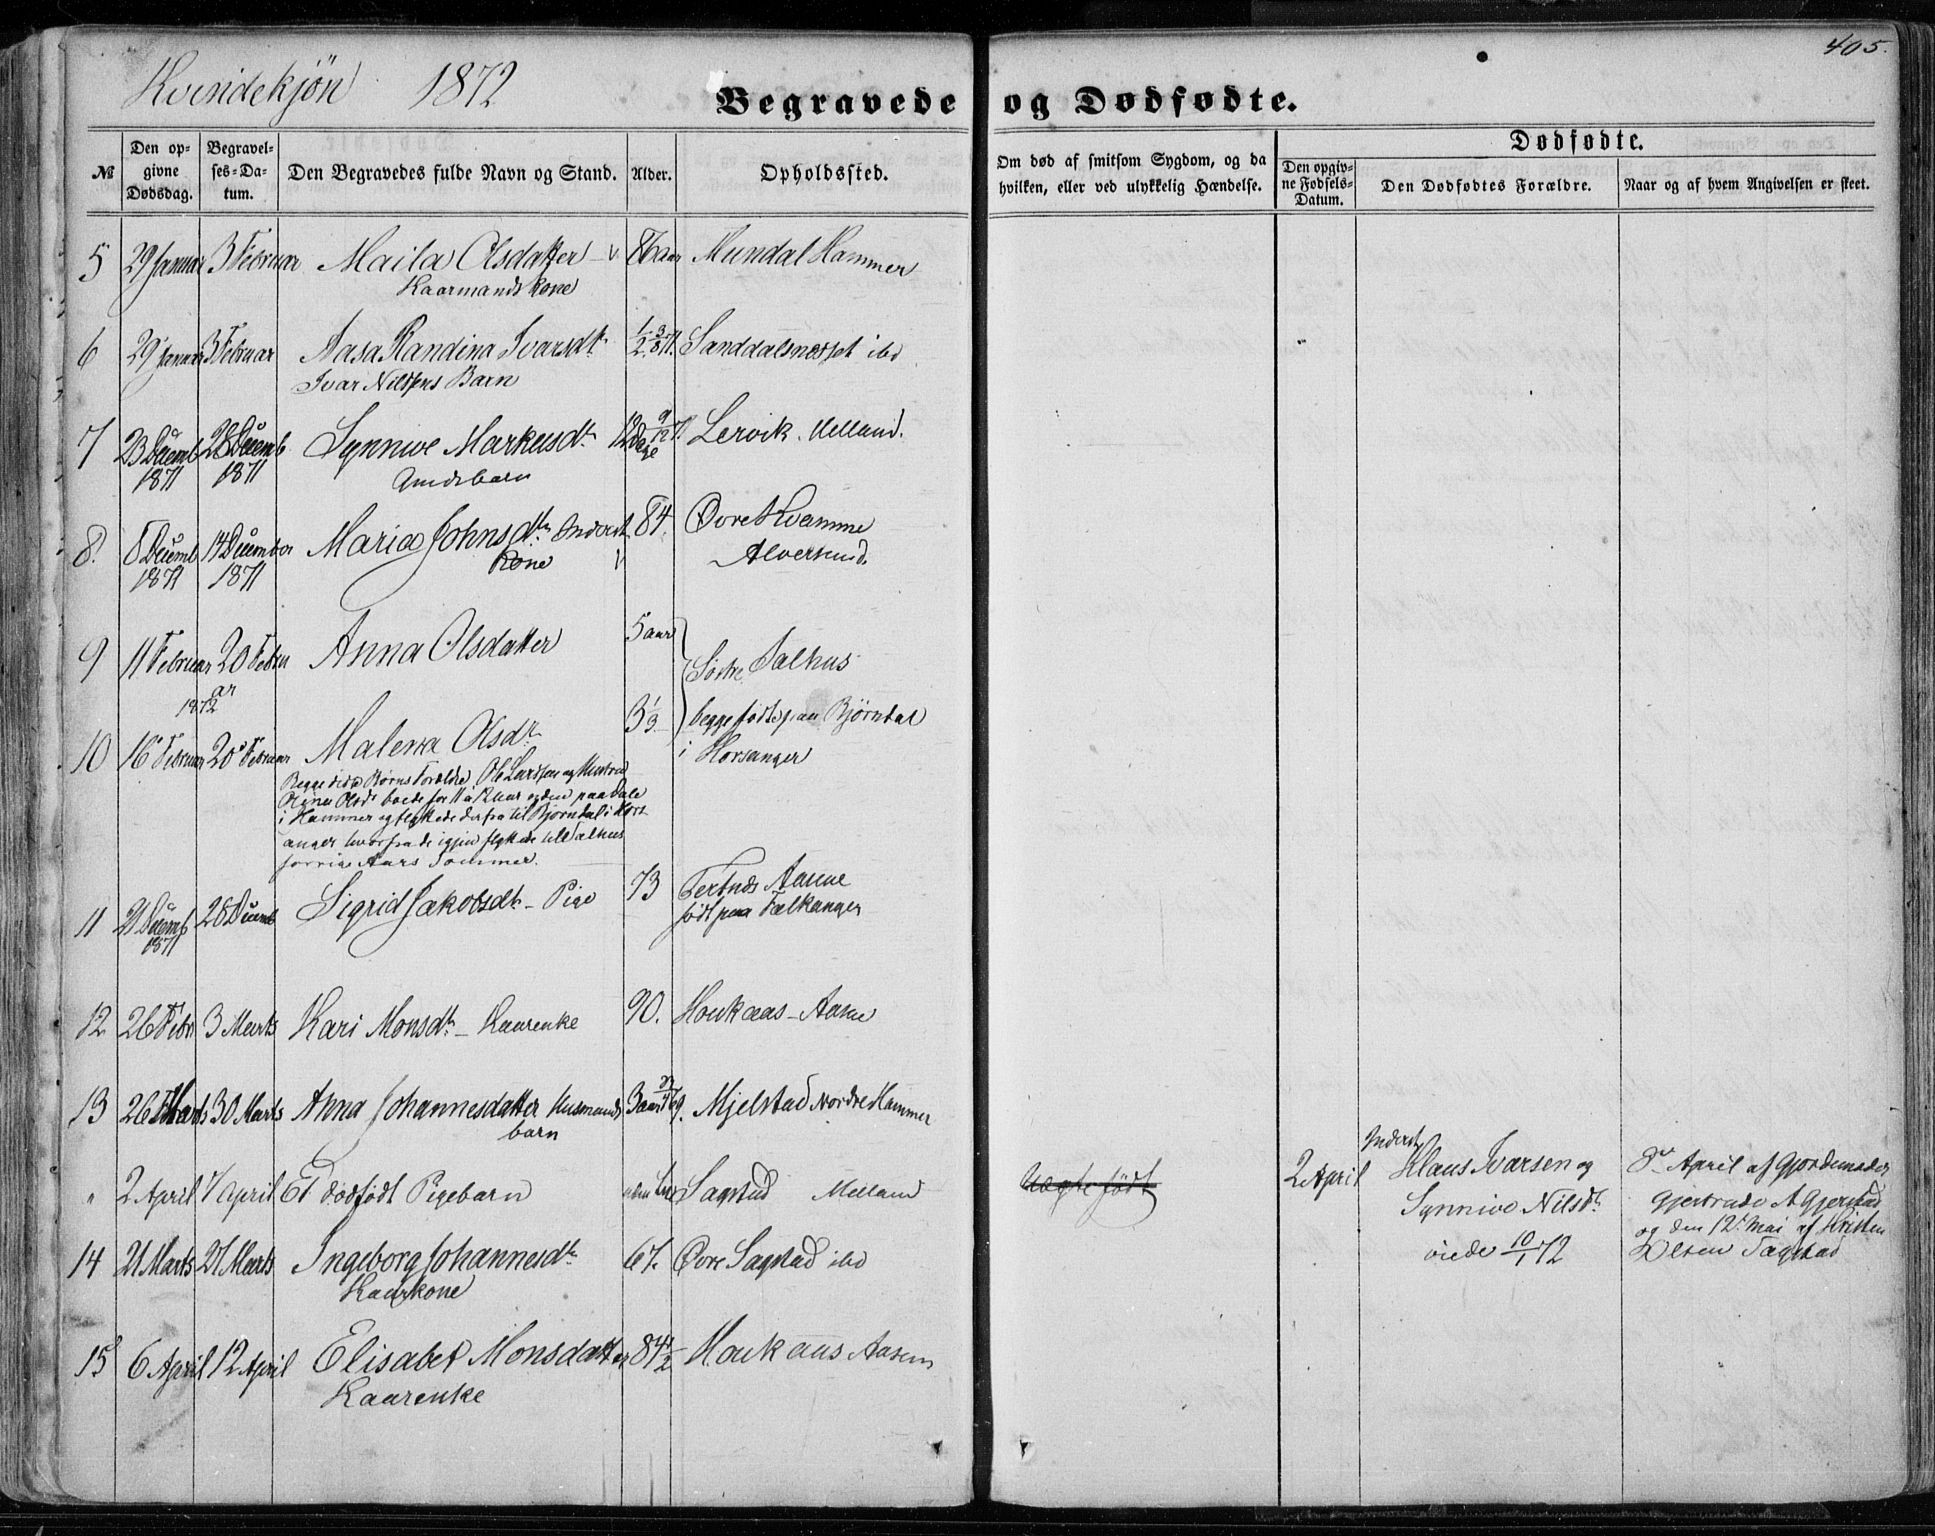 405.
Kvindekjøn 1872
Begravede og Dødfødte.
№
Den opgivne Dødsdag.
Begravelses-Datum.
Den Begravedes fulde Navn og Stand.
Alder.
Opholdssted.
Om død af smitsom Sygdom, og da hvilken, eller ved ulykkelig Hændelse.
Dødfødte.
Den opgivne Fødsels-Datum.
Den Dødfødtes Forældre.
Naar og af hvem Angivelsen er skeet.
5 29 Januar 3 Februar Maila Olsdatter v. 86 aar Mundal Hammer
Kaarmands Kone
6 29 Januar 3 Februar Aasa Randina Ivarsdtr 1/2 3/8 71. Sanddalsnesset ibd
Ivar Nilssens Barn
7 23 Decemb 1871 28 Decemb 1871 Synnive Markusdtr 12 Dage 9/12 71. Lervik Melland.
Gmdsbarn
8. 8 Decemb 1871 14 December 1871 Maria Johnsdtr Inderst 84. Øvre Kvamme
Kone v Alversund.
9 11 Februar 20 Februar 1872 Anna Olsdatter 5 aar
Søstre Salhus
10 16 Februar 20 Februar Malena Olsdtr 3 1/3 begge fødte paa Bjørndal
i Horsanger
Begge disse Børns Forældre, Ole Larssen og Hustru
Olina Olsdr boede for 11 a 12 Aar siden paa Dale
i Hammer og flyttede derfra til Bjørndal i Hors
anger hvorfra de igjen flyttede till Salhus
forrige Aars Sommer.
11 21 Decemb 1871 28 Decemb Sigrid Jakobsdtr - Pige 73 Tertnes Aasene
født paa Falkanger
12 26 Febr 3 Marts Kari Monsdtr - Kaarenke 90. Houkaas - Aasne
13 26 Marts 30 Marts Anna Johannesdatter Husmands 3 aar 69. Mjelstad Nordre Hammer
barn
" 2 April 7 April Et dødfødt Pigebarn Sagstad Melland
Uægte født
2 April
Inderst Klaus Ivarsen og
Synnive Nilsdtr
viede 10/1 72
8de April af Gjordemoder
Gjertrude A Gjerstad
og den 12te Mai af Kristen
Olsen Sagstad
14 21 Marts 27 Marts Ingeborg Johannesdtr 67. Øvre Sagstad ibd
Kaarkone
15 6 April 12 April Elisabet Monsdatter 84 1/2 Houkaas Aasene
Kaarenke